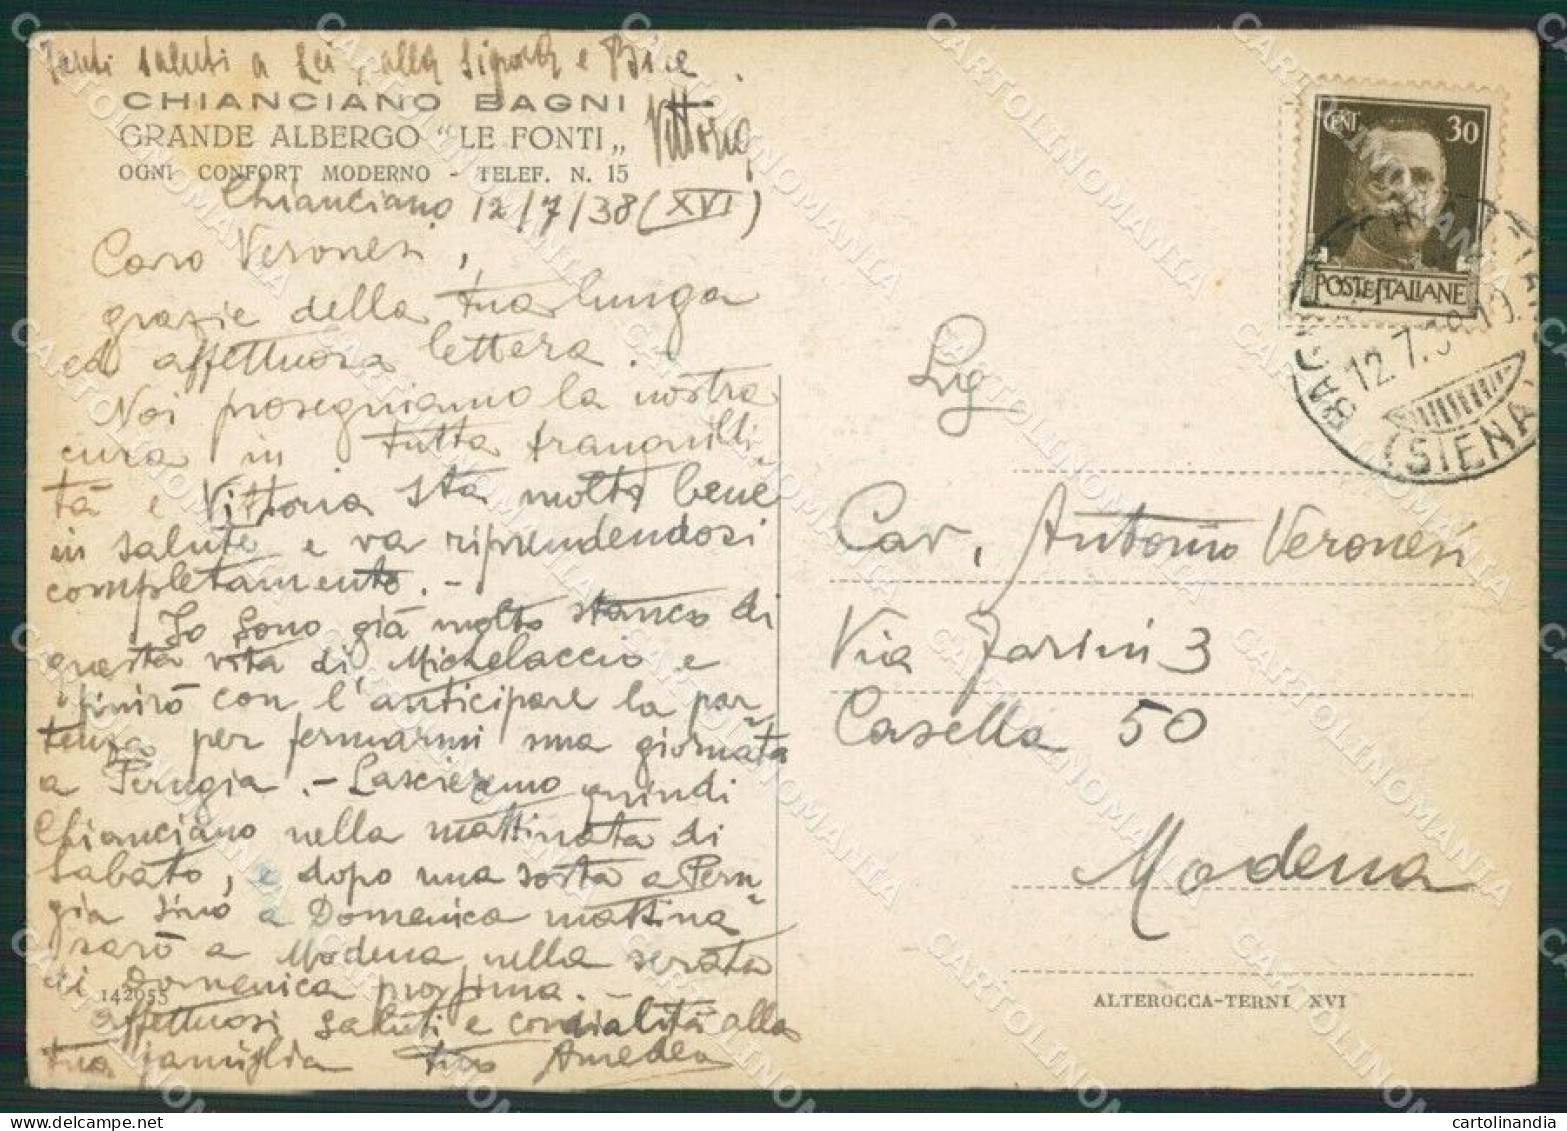 Tanti saluti a Lei, alla Signora e Bice
Vittoria
CHIANCIANO BAGNI
GRANDE ALBERGO "LE FONTI„
OGNI CONFORT MODERNO - TELEF. N. 15
Chianciano 12/7/38 (XVI)
Caro Veronesi,
grazie della tua lunga
ed affettuosa lettera.
Noi proseguiamo la nostra
cura in tutta tranquilli-
tà e Vittoria sta molto bene
in salute e va riprendendosi
completamente.-
Io sono già molto stanco di
questa vita di Michelaccio e
finirò con l'anticipare la par-
tenza per fermarmi una giornata
a Perugia.- Lascieremo quindi
Chianciano nella mattinata di
Sabato, e dopo una sosta a Peru-
gia sino a Domenica mattina
sarò a Modena nella serata
di Domenica prossima.-
142055
Affettuosi saluti e cordialità alla
tua famiglia tuo Amedeo
CENT 30
POSTE ITALIANE
12.7.38.19
(SIENA)
Sig
Cav. Antonio Veronesi
Via Farini 3
Casella 50
Modena
ALTEROCCA-TERNI XVI
CARTOLINOMANIA
cartolinandia